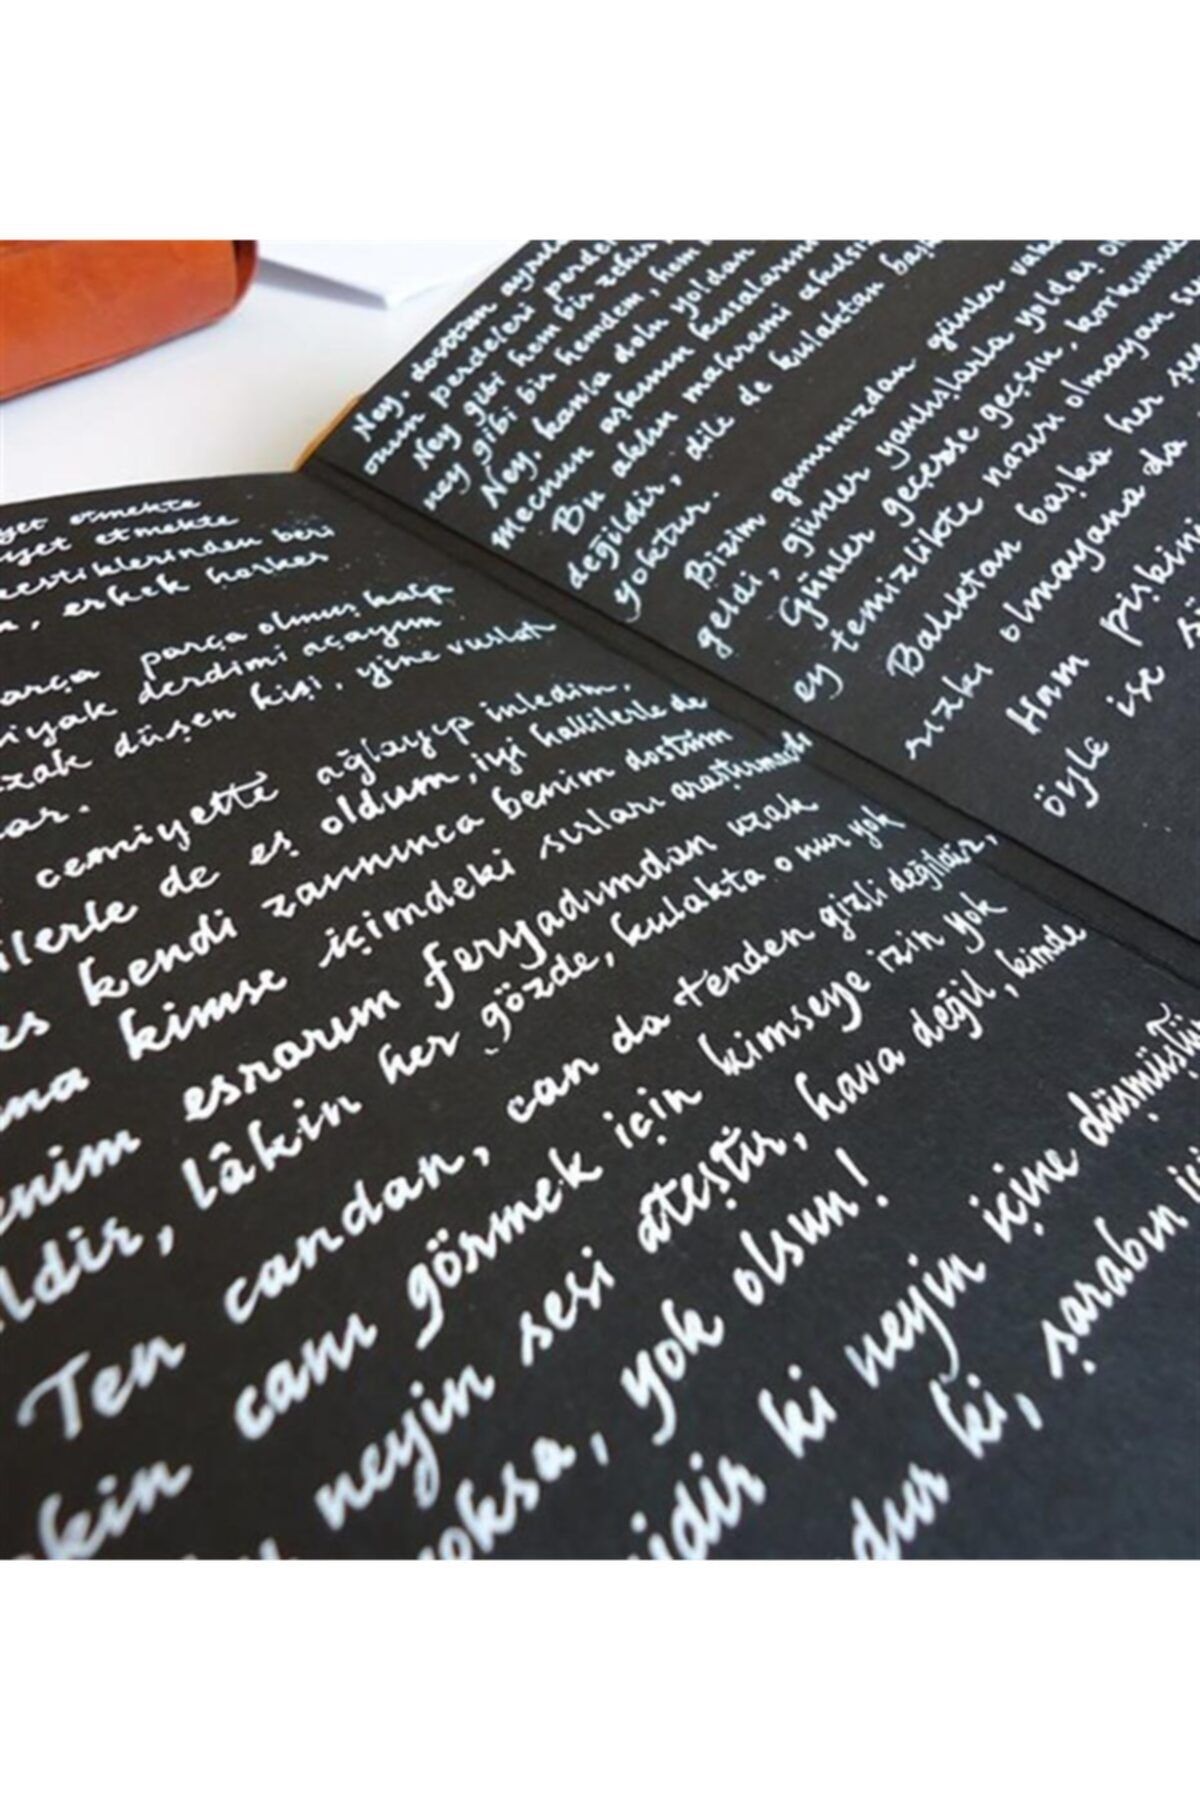 yet etmekte
yet etmekte
kestiklerinden beri
erkek herkes
parça olmuş kalp
derdimi açayım
düşen kişi, yine vuslat
ar.
cemiyette ağlayıp inledim,
ilerle de eş oldum, iyi hallilerle de
es kendi zannınca benim dostum
ma kimse içimdeki sırları araştırmadı
enim esrarım feryadımdan uzak
ldir, lâkin her gözde, kulakta o nur yok
Ten candan, can da tenden gizli değildir,
kin canı görmek için kimseye izin yok
neyin sesi ateştir, hava değil, kimde
oksa, yok olsun!
idir ki neyin içine düşmüştü
dur ki, şarabın iç
Ney, dosttan ayrıl
onun perdeleri perdel
Ney gibi hem bir zehir
ney gibi bir hemdem, hem
Ney, kanla dolu yoldan
mecnun aşkının kıssalarını
Bu aklın mahremi akılsı
değildir, dile de kulaktan başk
yoktur.
Bizim gamımızdan günler vak
geldi, günler yanışlarla yoldaş ol
Günler geçerse geçsin, korkumu
ey temizlikte naziri olmayan se
Balıktan başka her şey
rızkı olmayana da
Ham pişkini
öyle ise sö